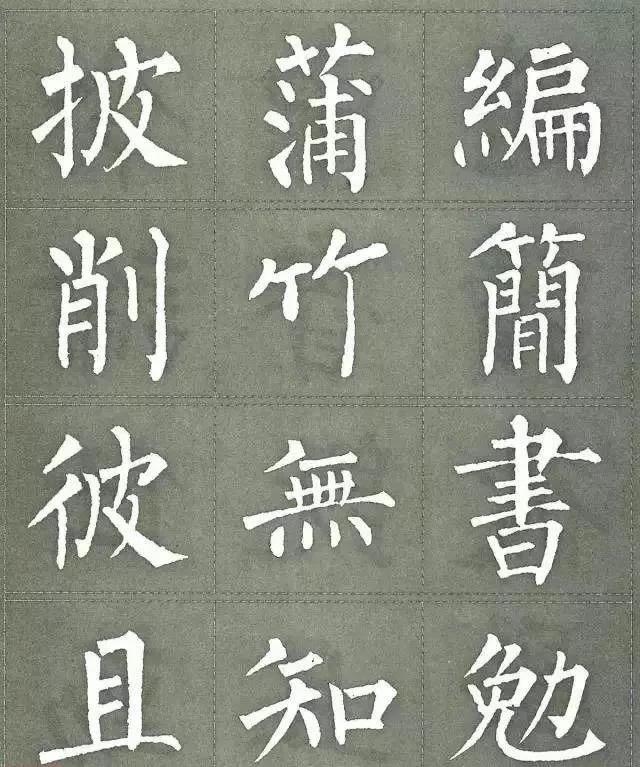 披蒲編
削竹簡
彼無書
且知勉